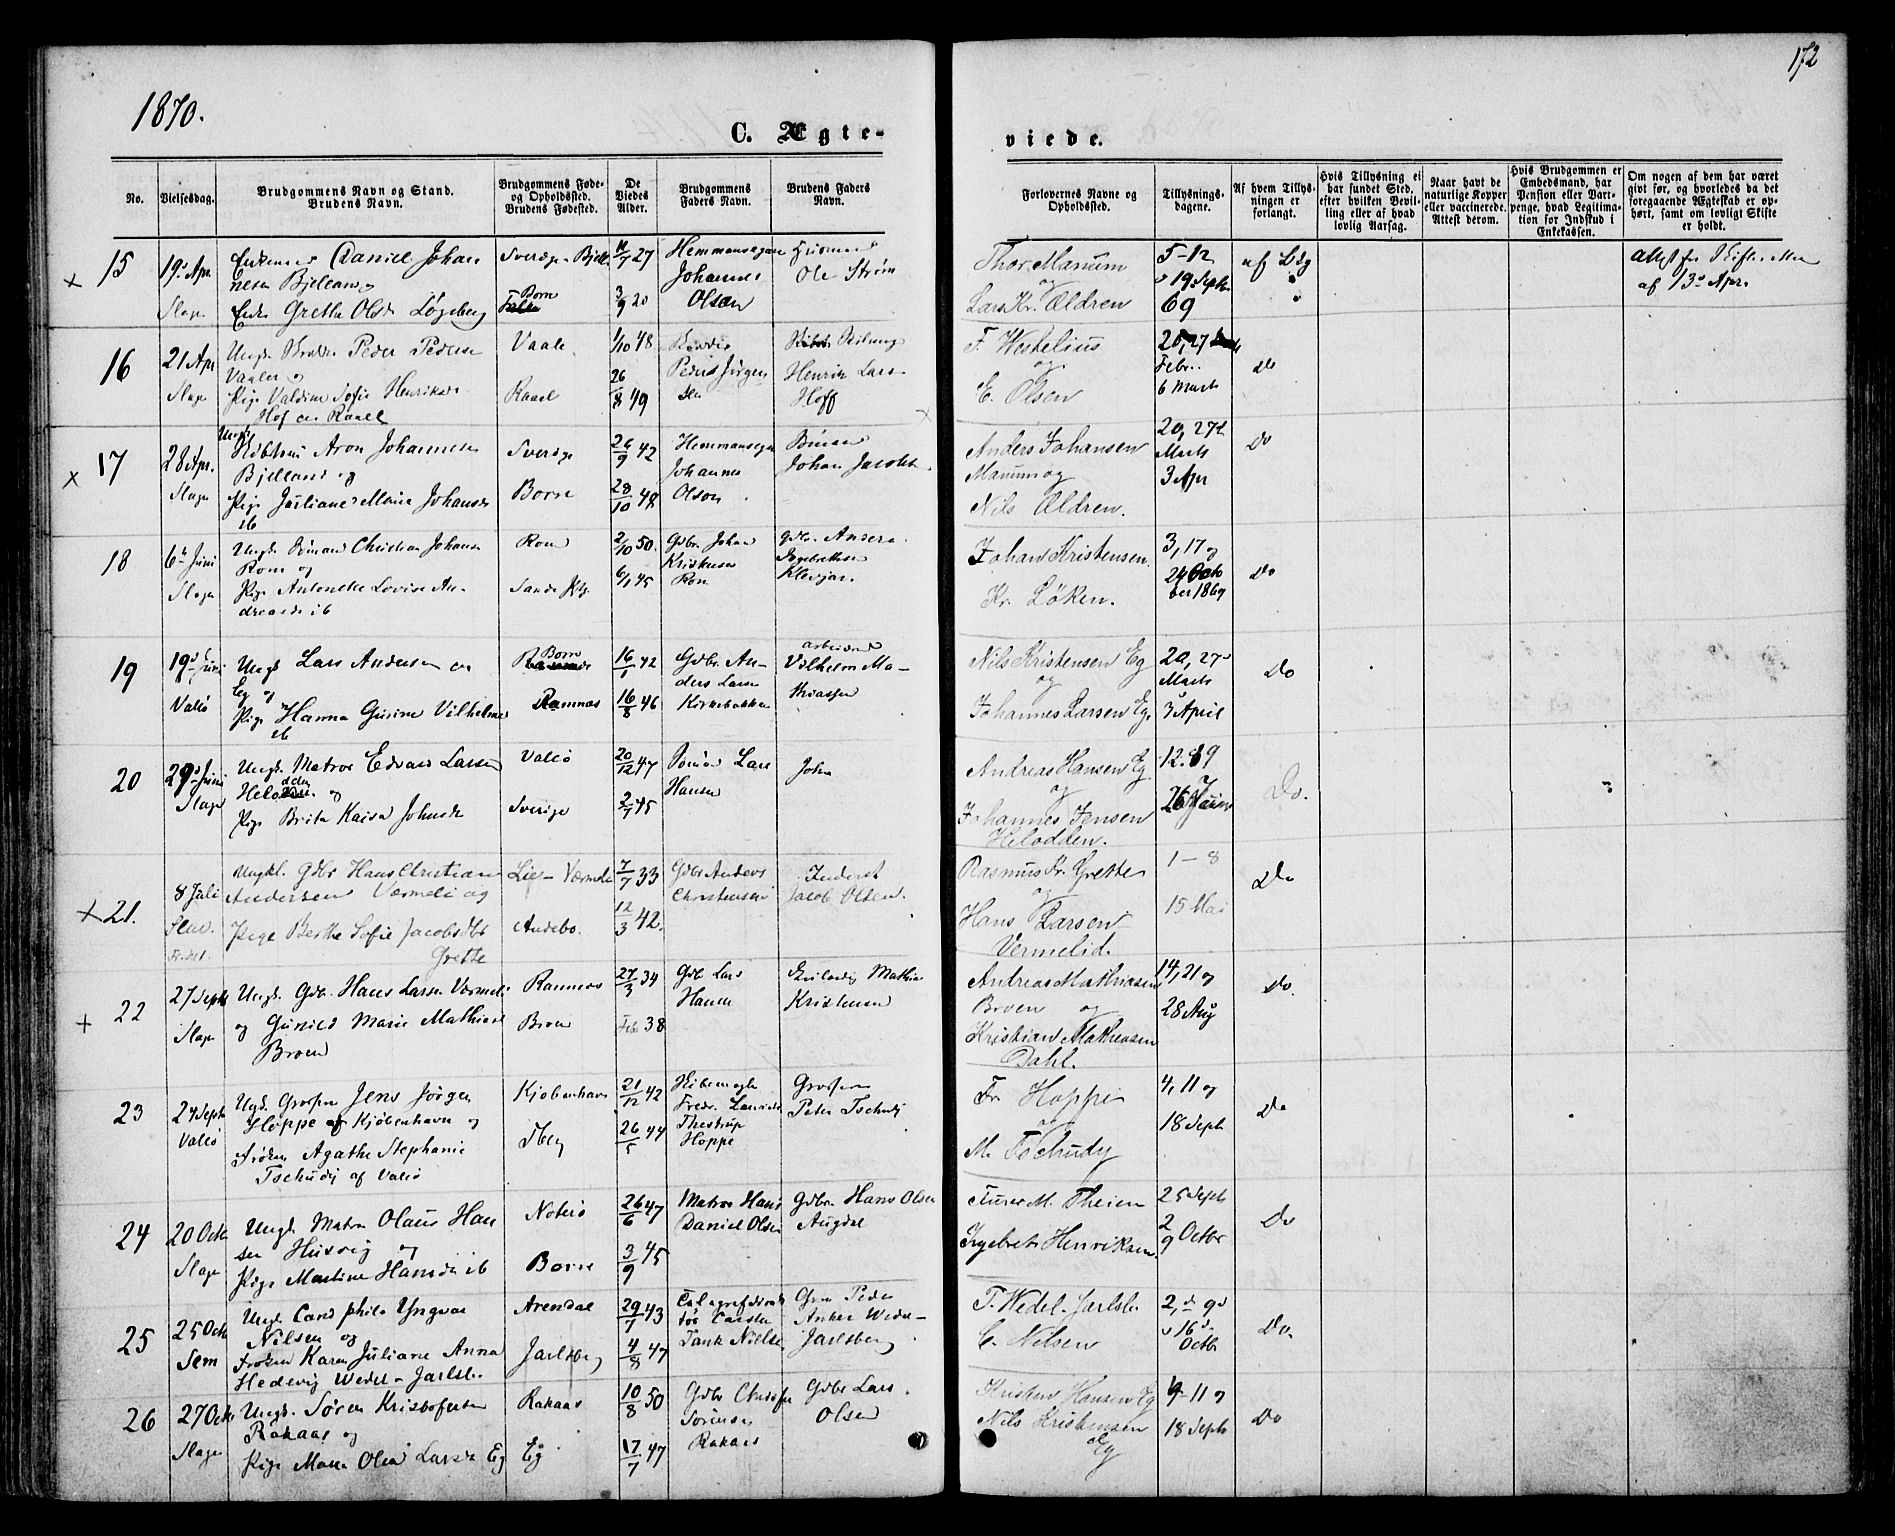 1870.
172
C. Ægte-
viede.
No.
Vielsesdag.
Brudgommens Navn og Stand.
Brudens Navn.
Brudgommens Føde-
og Opholdssted.
Brudens Fødested.
De
Viedes
Alder.
Brudgommens
Faders Navn.
Brudens Faders
Navn.
Forlovernes Navne og
Opholdssted.
Tillysnings-
dagene.
Af hvem Tillys-
ningen er
forlangt.
Hvis Tillysning ei
har fundet Sted,
efter hvilken Bevil-
ling eller af hvad
lovlig Aarsag.
Naar havt de
naturlige Kopper
eller vaccinerede.
Attest derom.
Hvis Brudgommen er
Embedsmand, har
Pension eller Vart-
penge, hvad Legitima-
tion for Indskud i
Enkekassen.
Om nogen af dem har været
givt før, og hvorledes da det
foregaaende Ægteskab er op-
hørt, samt om lovligt Skifte
er holdt.
x 15
19de Apr.
Slagn
Enkemand Daniel Johan
nesen Bjelland og
Enke Grethe Olsdr Løgeberg
Sverige
Borre
11/7 27
3/9 20
Hemmanseger
Johannes
Olsen
Husmand
Ole Strøm
Thor Manum
og
Lars Kr. Ældren
5-12
o 19 Septr.
69
af Bdg
af 13de Apr.
16
21 Apr
Slagn
Ungk. Peder Pedersen
Vaaler og
Pige Valdine Sofie Henriksdr
Hof av Raael
Vaale
Raael
1/10 48
26/8 49
Peder Jørgen
sen
Henrik Lars
Hoff
F. Westelius
og
E. Olsen
20, 27
Febr.
6 Marts
Do
x 17
28 Apr.
Slagn
Ungk.
Aron Johannesen
Bjelland og
Pige Juliane Marie Johansdr
ib
Sverige
Borre
26/9 42
28/10 48
Hemmanseger
Johannes
Olson
Johan Jacobs
Anders Johansen
Manum og
Nils Ældren.
20, 27de
Marts
3 Apr
Do
18
6te Juni
Slagn
Ungk. Sømand Christian Johans
Rom og
Pige Antonette Lovise An-
dreasdr ib
Rom
Sande
2/10 50.
6/1 45
Gdbr. Johan
Kristensen
Rom
Gdbr. Anders
Ingebrethsen
Klevjar.
Johan Kristensen
Kr. Løken.
3, 17 og
24 Octo
ber 1869
Do
19
19de Juni
Valø
Ungk Lars Andersen
Eg og
Pige Hanna Gurine Vilhelms
ib
Borre
Ramnæs
16/1 42
16/8 46
Gdbr. An-
ders Larsen
Kirkebakken
arbeider
Vilhelm Ma-
thiassen
Nils Kristensen Eg
og
Johannes Larsen Eg.
20, 27de
Marts
3 April
Do
20
29de Juni
Slagn
Ungk. Matros Edvard Larsen
Helodden og
Pige Brita Kaisa Johnsdr
Valø
Sverige
20/12 47
2/7 45
Sømand Lars
Hansen
John
Andreas Hansen Eg
og
Johannes Jensen
Helodden.
12. 19
26 Juni
Do.
x 21.
8 Juli
Slav.
Ungkl. Gdbr Hans Christian
Andersen Værmeli og
Pige Berthe Sofie Jacobsdtr
Grette
Lie- Værmeli
Andebo.
7/7 33
12/3 42.
Gdbr Anders
Christensen
Inderst
Jacob Olsen.
Rasmus Fr. Grette
og
Hans Larsen
Vermelid.
1 - 8
15 Mai
Do
+ 22
27 Septb
Slagn
Ungk. Gdbr. Hans Larsen Værmeli
og Gunild Marie Mathiasd
Broen
Ramnæs
Broen
27/3 34
Febr 38
Gdbr Lars
Hansen
Mathias
Kristensen
Andreas Mathiasen
Broen og
Kristian Mathiasen
Dahl.
14, 21 og
28 Aug
Do.
23
27 Septb
Valø
Ungk. Grosserer Jens Jørgen
Hoppe af Kjøbenhavn og
Frøken Agathe Stephanie
Tschudy af Valø
Kjøbenhavn
Tbrg
21/12 42
26/5 44
Fredr. Lauritz
Thestrup
Hoppe
Grosserer
Peter Tschudy
Fr Hoppe
og
M. Tschudy
4, 11 og
18 Septb
Do
24
20 Octb
Slagn
Ungk. Matros Olaus Han
sen Husvig og
Pige Martine Hansdr ib
Nøterø
Borre
26/6 47
3/9 45
Matros Hans
Daniel Olsen
Gdbr. Hans Olsen
Augdal
Furer M. Theien
Ingebret Henriksen.
25 Septb
2
9 Octbr
Do
25
25 Octb
Sem
Ungk. Cand phil. Yngvar
Nilsen og
Frøken Karen Juliane Anna
Hedevig Wedel-Jarlsb.
Arendal
Jarlsberg
29/1 43
4/8 47
Telegrafdirek
tør Carsten
Tank Nilsen
Grev Peder
Anker Wedel-
Jarlsberg
F. Wedel-Jarlsb.
C. Nelsen
2, d 9de
o 16 d.
Octbr
Do.
26
27 Octb
Slagn
Ungk. Søren Kristofersen
Rakaas og
Pige Maren Olea Larsdr Eg
Rakaas
Eg
10/8 50
17/7 47
Gdbr Christofer
Sørensen
Rakaas
Gdbr Lars
Olsen
Kristen Hansen Eg
Nils Kristensen
Eg
4-11 og
18 Septb
Do